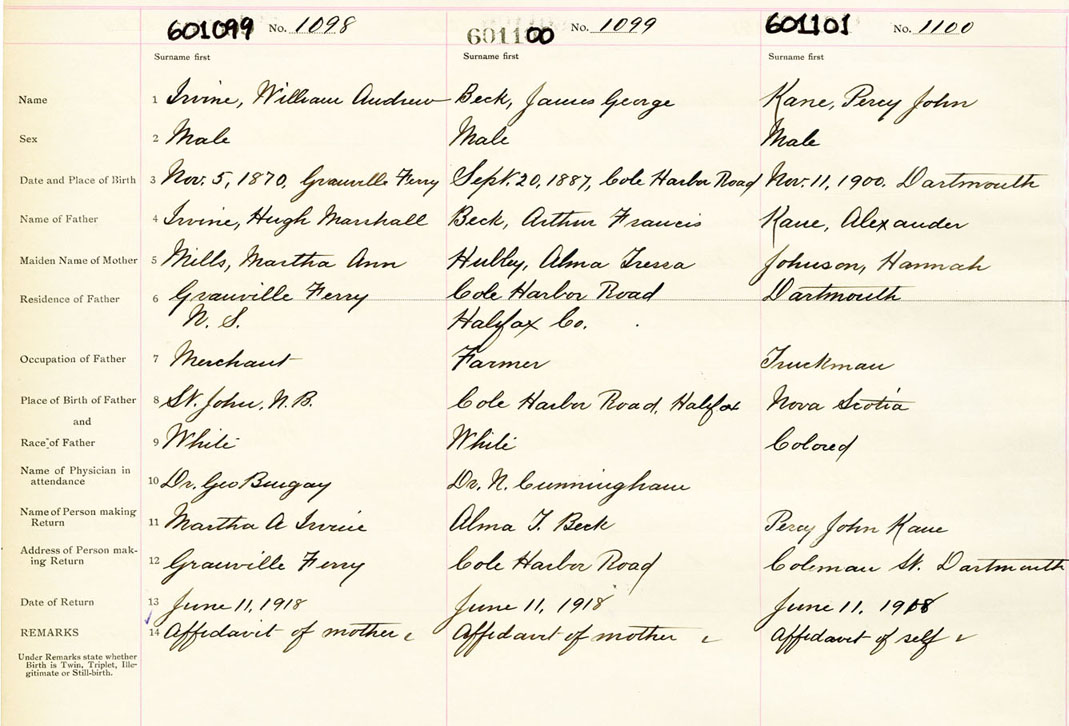 601099 No. 1098 601100 No. 1099 601101 No. 1100
Surname first Surname first Surname first
Name 1 Irvine, William Andrew Beck, James George Kane, Percy John
Sex 2 Male Male Male
Date and Place of Birth 3 Nov. 5, 1870, Granville Ferry Sept. 20, 1887, Cole Harbor Road Nov. 11, 1900. Dartmouth
Name of Father 4 Irvine, Hugh Marshall Beck, Arthur Francis Kane, Alexander
Maiden Name of Mother 5 Mills, Martha Ann Hubly, Alma Tressa Johnson, Hannah
Residence of Father 6 Granville Ferry Cole Harbor Road Dartmouth
N. S. Halifax Co.
Occupation of Father 7 Merchant Farmer Truckman
Place of Birth of Father 8 St. John, N.B. Cole Harbor Road, Halifax Nova Scotia
and
Race of Father 9 White White Colored
Name of Physician in
attendance 10 Dr. Geo Dr. N. Cunningham
Name of Person making
Return 11 Martha A Irvine Alma T. Beck Percy John Kane
Address of Person mak-
ing Return 12 Granville Ferry Cole Harbor Road Coleman St. Dartmouth
Date of Return 13 June 11, 1918 June 11, 1918 June 11, 1918
REMARKS 14 Affidavit of mother Affidavit of mother Affidavit of self
Under Remarks state whether
Birth is Twin, Triplet, Ille-
gitimate or Still-birth.